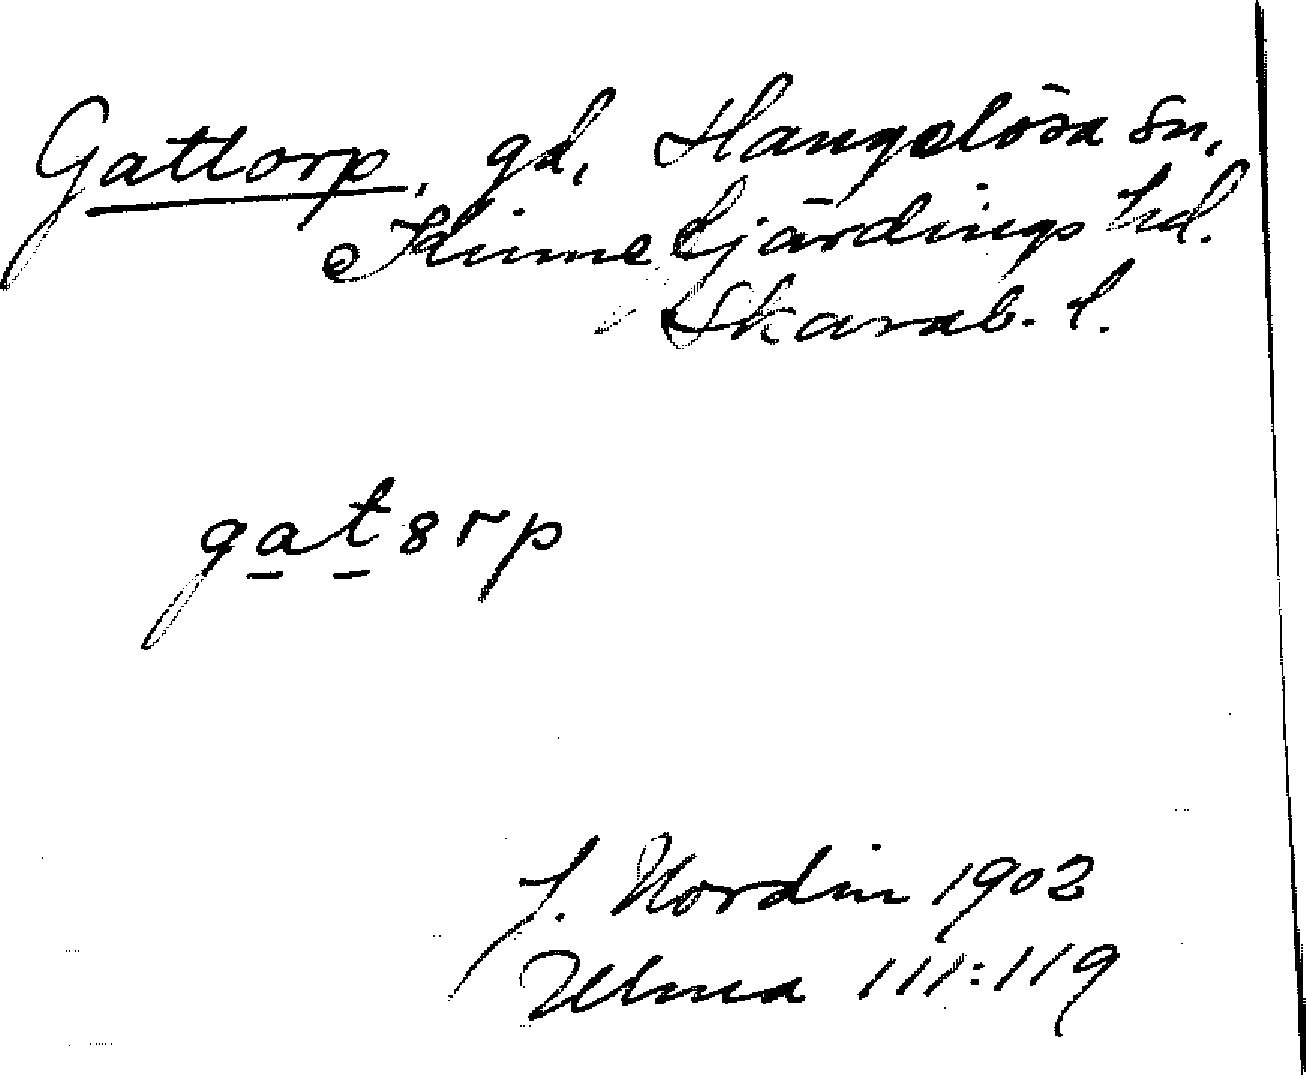 Gattorp, gd, Hangelösa sn,
Kinnefjärdings hd.
Skarab. l.
gat8rp
J. Nordin 1902
Ulma 111:119